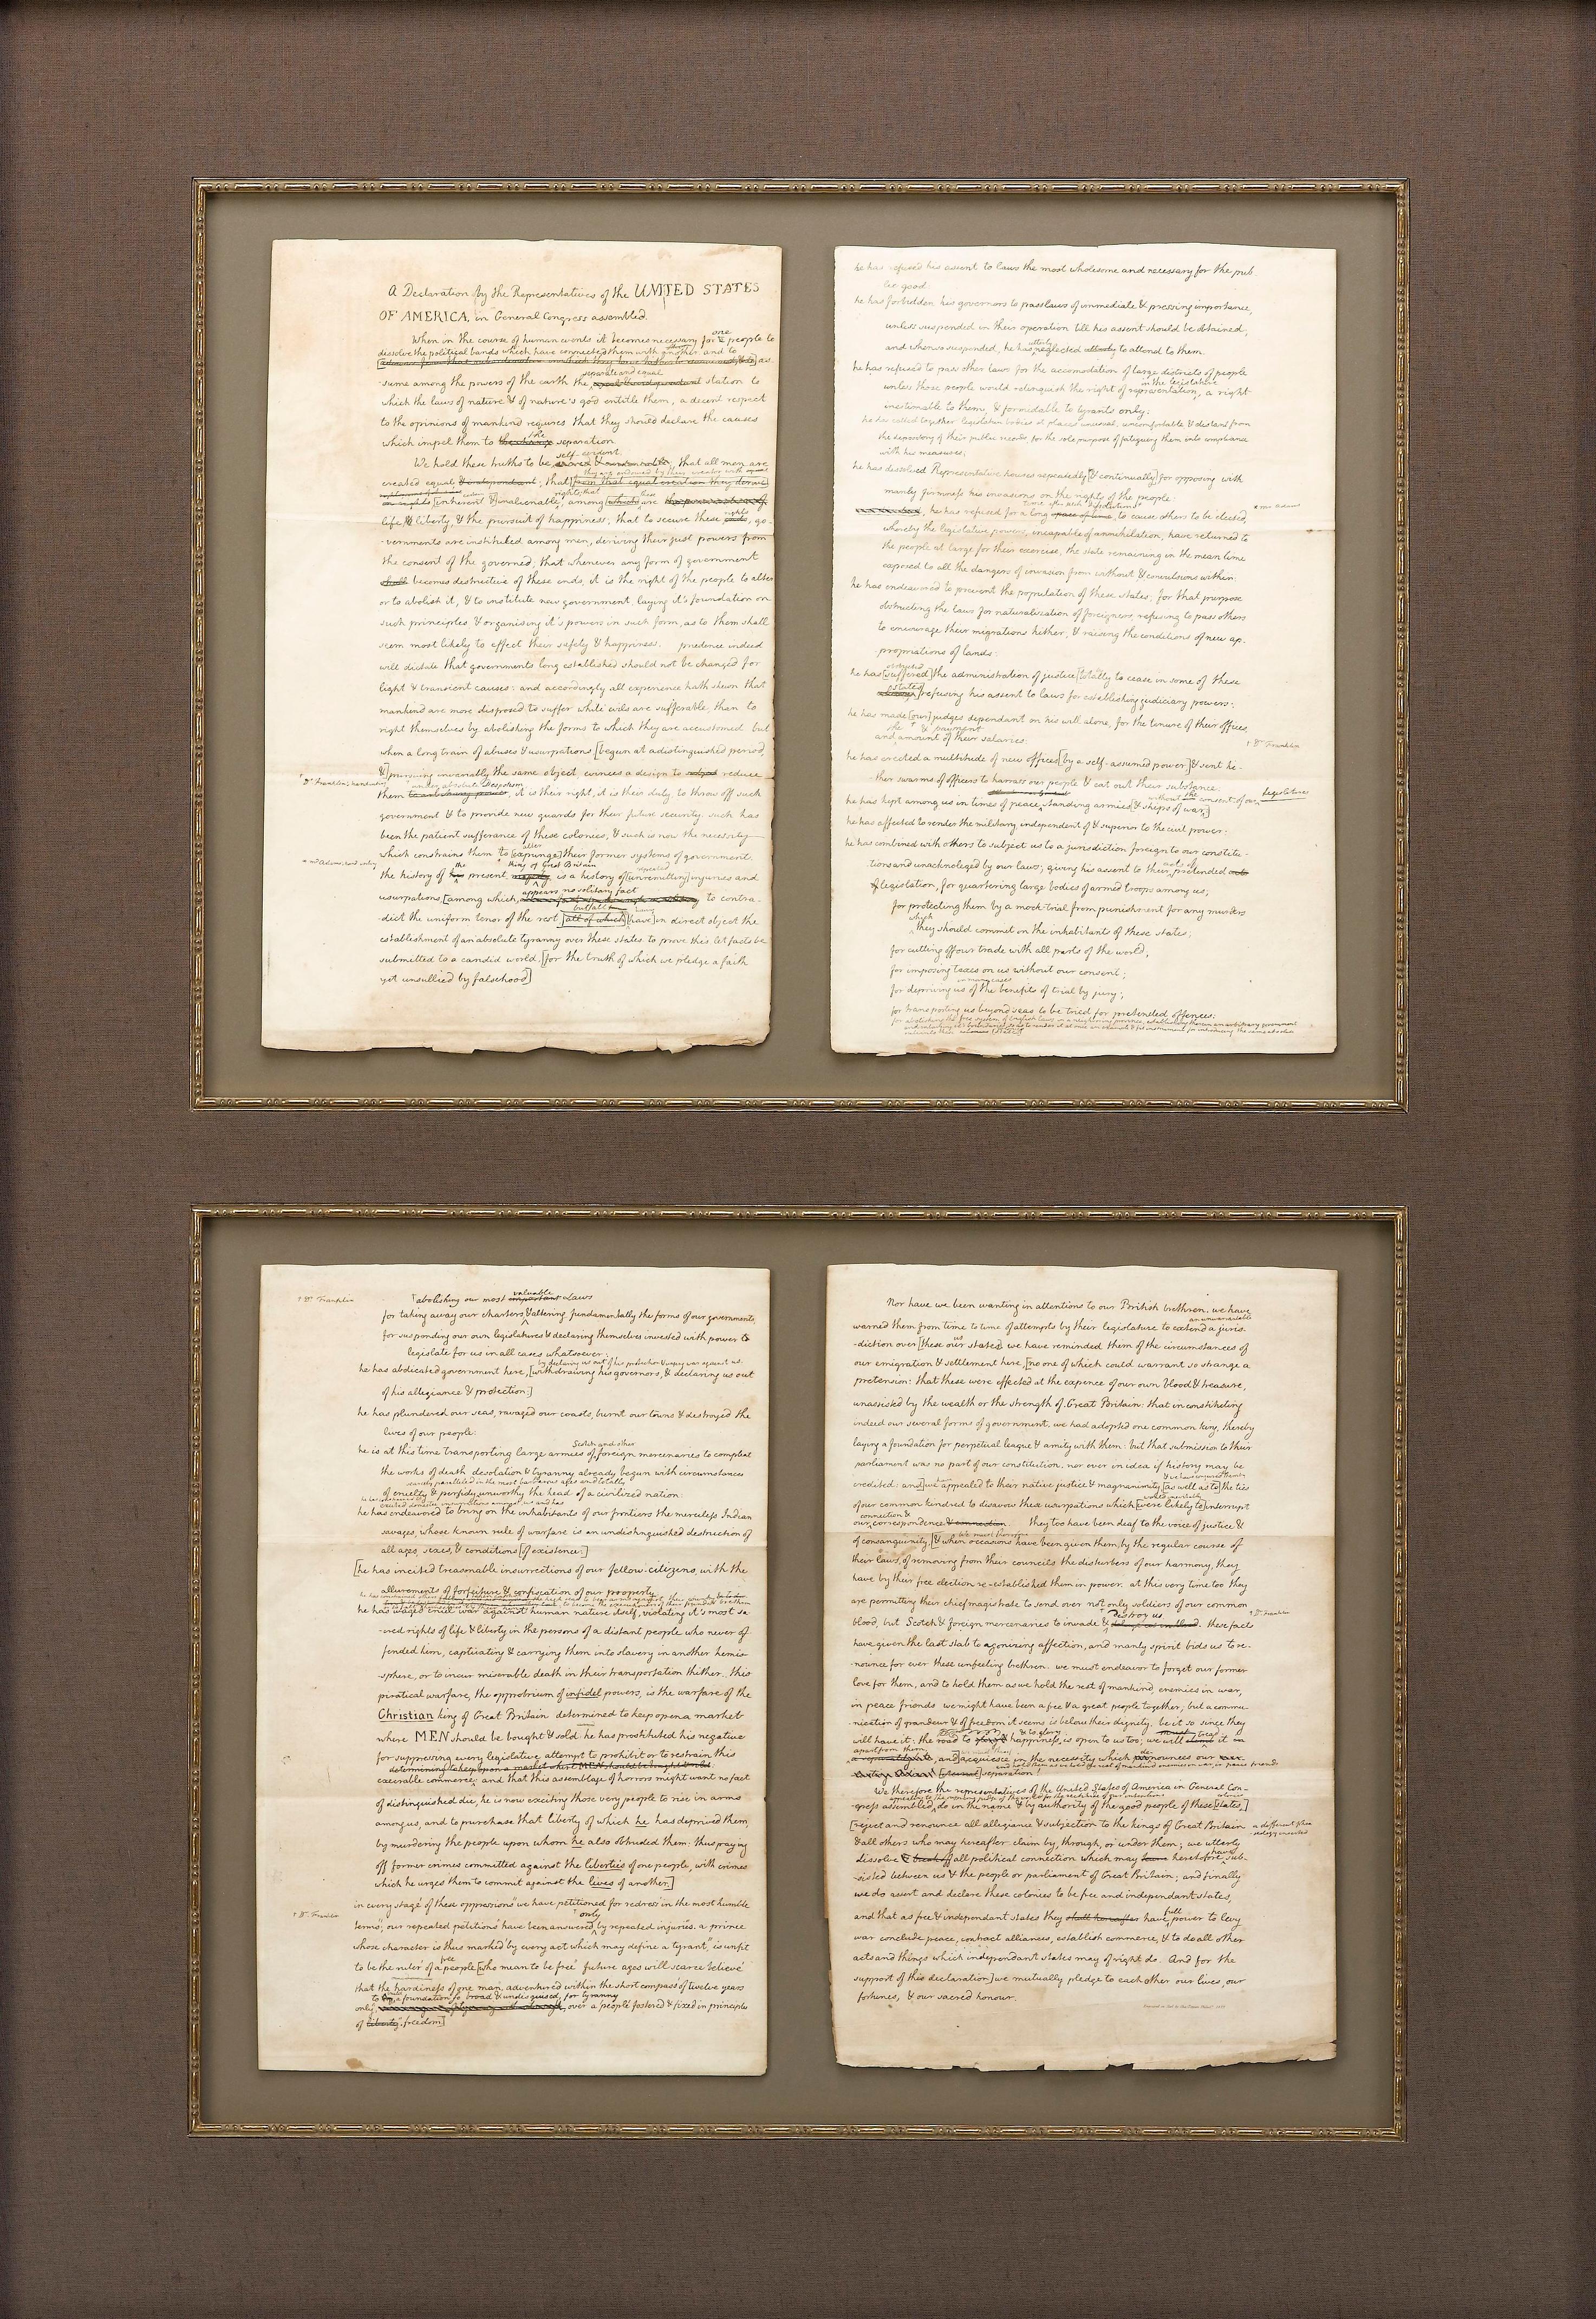 A Declaration by the Representatives of the UNITED STATES
OF AMERICA, in General Congress assembled.
When in the course of human events it becomes necessary for a people to
one
dissolve the political bands which have connected them with another, and to
as-
separate and equal
-sume among the powers of the earth the station to
which the laws of nature & of nature's god entitle them, a decent respect
to the opinions of mankind requires that they should declare the causes
the
which impel them to the change separation
self-evident
We hold these truths to be sacred & undeniable; that all men are
they are endowed by their creator with
created equal & independant; that from that equal creation they derive
rights; that these
[inherent &] inalienable, among which are the preservation of
rights
life, & liberty, & the pursuit of happiness; that to secure these ends, go-
-vernments are instituted among men, deriving their just powers from
the consent of the governed; that whenever any form of government
shall becomes destructive of these ends, it is the right of the people to alter
or to abolish it, & to institute new government, laying it's foundation on
such principles & organising it's powers in such form, as to them shall
seem most likely to effect their safety & happiness. prudence indeed
will dictate that governments long established should not be changed for
light & transient causes: and accordingly all experience hath shewn that
mankind are more disposed to suffer while evils are sufferable, than to
right themselves by abolishing the forms to which they are accustomed. but
when a long train of abuses & usurpations [begun at a distinguished period,
&] pursuing invariably the same object, evinces a design to subject reduce
Dr. Franklin's handwriting
under absolute Despotism
them to arbitrary power, it is their right, it is their duty, to throw off such
government & to provide new guards for their future security. such has
been the patient sufferance of these colonies, & such is now the necessity
alter
which constrains them to [expunge] their former systems of government.
* Mr. Adams' hand writing
the king of Great Britain repeated
the history of his present majesty, is a history of [unremitting] injuries and
appears no solitary fact
usurpations, [among which, to contra-
but all have
-dict the uniform tenor of the rest, [all of which] [have] in direct object the
establishment of an absolute tyranny over these states. to prove this let facts be
submitted to a candid world, [for the truth of which we pledge a faith
yet unsullied by falsehood]
he has refused his assent to laws the most wholesome and necessary for the pub
lic good.
he has forbidden his governors to pass laws of immediate & pressing importance,
unless suspended in their operation till his assent should be obtained;
utterly
and when so suspended, he has neglected utterly to attend to them.
he has refused to pass other laws for the accomodation of large districts of people
in the legislature
unless those people would relinquish the right of representation, a right
inestimable to them, & formidable to tyrants only:
he has called together legislative bodies at places unusual, uncomfortable & distant from
the depository of their public records for the sole purpose of fatiguing them into compliance
with his measures;
he has dissolved Representative houses repeatedly [& continually] for opposing with
manly firmness his invasions on the rights of the people:
time after such dissolutions
* Mr. Adams
he has refused for a long space of time, to cause others to be elected,
whereby the legislative powers, incapable of annihilation, have returned to
the people at large for their exercise, the state remaining in the mean time
exposed to all the dangers of invasion from without & convulsions within:
he has endeavored to prevent the population of these states; for that purpose
obstructing the laws for naturalization of foreigners, refusing to pass others
to encourage their migrations hither, & raising the conditions of new ap-
-propriations of lands:
obstructed
he has [suffered] the administration of justice [totally to cease in some of these
states
refusing his assent to laws for establishing judiciary powers:
he has made [our] judges dependant on his will alone, for the tenure of their offices,
the & payment
and amount of their salaries:
† Dr. Franklin
he has erected a multitude of new offices [by a self-assumed power] & sent hi-
-ther swarms of officers to harrass our people & eat out their substance:
without the consent of our legislatures
he has kept among us in times of peace standing armies [& ships of war;]
he has affected to render the military, independent of & superior to the civil power:
he has combined with others to subject us to a jurisdiction foreign to our constitu-
acts of
-tions and unacknoleged by our laws; giving his assent to their pretended acts
of legislation, for quartering large bodies of armed troops among us;
for protecting them by a mock-trial from punishment for any murders
which
they should commit on the inhabitants of these states;
for cutting off our trade with all parts of the world;
for imposing taxes on us without our consent;
in many cases
for depriving us of the benefits of trial by jury;
for transporting us beyond seas to be tried for pretended offences:
for abolishing the free system of English laws in a neighboring province, establishing therein an arbitrary government
and enlarging it's boundaries so as to render it at once an example & fit instrument for introducing the same absolute
rule into these colonies [states]
† Dr. Franklin
abolishing our most important Laws
valuable
for taking away our charters, & altering fundamentally the forms of our governments;
for suspending our own legislatures & declaring themselves invested with power to
legislate for us in all cases whatsoever:
by declaring us out of his protection & waging war against us.
he has abdicated government here, [withdrawing his governors, & declaring us out
of his allegiance & protection:]
he has plundered our seas, ravaged our coasts, burnt our towns & destroyed the
lives of our people:
Scotch and other
he is at this time transporting large armies of foreign mercenaries to compleat
the works of death desolation & tyranny already begun with circumstances
scarcely paralleled in the most barbarous ages and totally
of cruelty & perfidy unworthy the head of a civilized nation:
excited domestic insurrections amongst us and has
he has endeavored to bring on the inhabitants of our frontiers the merciless Indian
savages, whose known rule of warfare is an undistinguished destruction of
all ages, sexes, & conditions [of existence:]
[he has incited treasonable insurrections of our fellow-citizens, with the
allurements of forfeiture & confiscation of our property:
he has waged cruel war against human nature itself, violating it's most sa-
-cred rights of life & liberty in the persons of a distant people who never of-
fended him, captivating & carrying them into slavery in another hemi-
-sphere, or to incur miserable death in their transportation thither. this
piratical warfare, the opprobrium of infidel powers, is the warfare of the
Christian king of Great Britain determined to keep open a market
where MEN should be bought & sold he has prostituted his negative
for suppressing every legislative attempt to prohibit or to restrain this
determining to keep open a market where MEN should be bought & sold
execrable commerce: and that this assemblage of horrors might want no fact
of distinguished die, he is now exciting those very people to rise in arms
among us, and to purchase that liberty of which he has deprived them,
by murdering the people upon whom he also obtruded them: thus paying
off former crimes committed against the liberties of one people, with crimes
which he urges them to commit against the lives of another.]
in every stage of these oppressions we have petitioned for redress in the most humble
† Dr. Franklin
only
terms; our repeated petitions have been answered by repeated injuries. a prince
whose character is thus marked by every act which may define a tyrant, is unfit
free
to be the ruler of a people [who mean to be free. future ages will scarce believe
that the hardiness of one man, adventured within the short compass of twelve years
to lay a foundation so broad & undisguised, for tyranny
only, over a people fostered & fixed in principles
of liberty freedom]
Nor have we been wanting in attentions to our British brethren. we have
an unwarrantable
warned them from time to time of attempts by their legislature to extend a juris-
us
-diction over [these our states] we have reminded them of the circumstances of
our emigration & settlement here, [no one of which could warrant so strange a
pretension: that these were effected at the expence of our own blood & treasure,
unassisted by the wealth or the strength of Great Britain: that in constituting
indeed our several forms of government, we had adopted one common king, thereby
laying a foundation for perpetual league & amity with them: but that submission to their
parliament was no part of our constitution, nor ever in idea if history may be
have & we have conjured them by
credited: and] we appealed to their native justice & magnanimity, [as well as to] the ties
would inevitably
of our common kindred to disavow these usurpations which [were likely to] interrupt
connection &
our correspondence & connection. they too have been deaf to the voice of justice &
we must therefore
of consanguinity, [& when occasions have been given them, by the regular course of
their laws, of removing from their councils the disturbers of our harmony, they
have by their free election re-established them in power. at this very time too they
are permitting their chief magistrate to send over not only soldiers of our common
destroy us
† Dr. Franklin
blood, but Scotch & foreign mercenaries to invade & these facts
have given the last stab to agonizing affection, and manly spirit bids us to re-
-nounce for ever these unfeeling brethren. we must endeavor to forget our former
love for them, and to hold them as we hold the rest of mankind, enemies in war,
in peace friends. we might have been a free & a great people together; but a commu-
nication of grandeur & of freedom it seems is below their dignity. be it so, since they
& to glory tread
will have it: the road to happiness is open to us too; we will it
apart from them
and] acquiesce in the necessity which denounces our
and hold them as we hold the rest of mankind enemies in war, in peace friends
[eternal] separation!
We therefore the representatives of the United States of America in General Con-
appealing to the supreme judge of the world for the rectitude of our intentions
colonies
-gress assembled, do in the name & by authority of the good people of these [states,]
[reject and renounce all allegiance & subjection to the kings of Great Britain
a different phra
seology inserted
& all others who may hereafter claim by, through, or under them; we utterly
have
dissolve & break off all political connection which may have heretofore sub-
-sisted between us & the people or parliament of Great Britain; and finally
we do assert and declare these colonies to be free and independant states,
full
and that as free & independant states they shall hereafter have power to levy
war, conclude peace, contract alliances, establish commerce, & to do all other
acts and things which independant states may of right do. And for the
support of this declaration] we mutually pledge to each other our lives, our
fortunes, & our sacred honour.